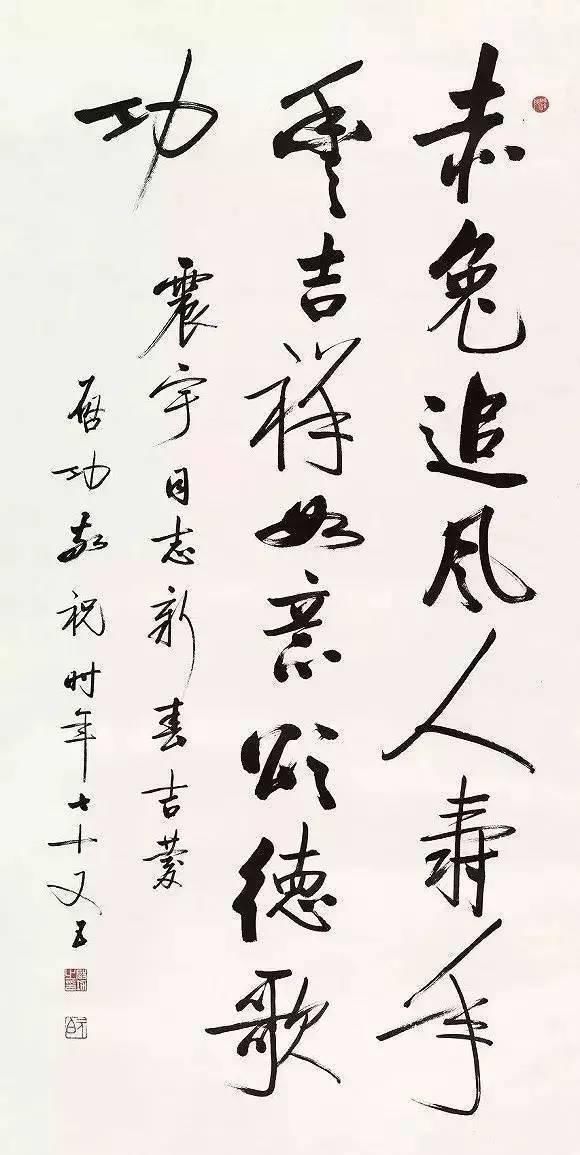 赤兔追风人寿年
豐吉祥如意颂德歌
功
震宇同志新春吉慶
启功敬祝时年七十又五